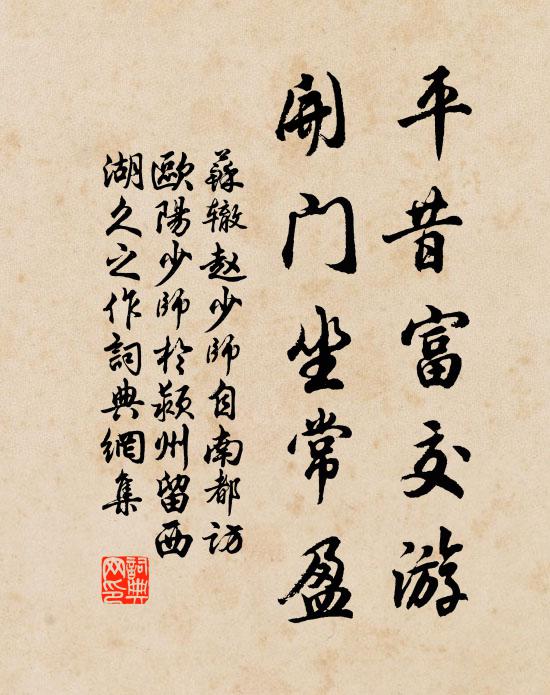 平昔富交游
開門坐常盈
蘇辙赵少師自南都訪
歐陽少師於颍州留西
湖久之作詞典網集
詞典网印